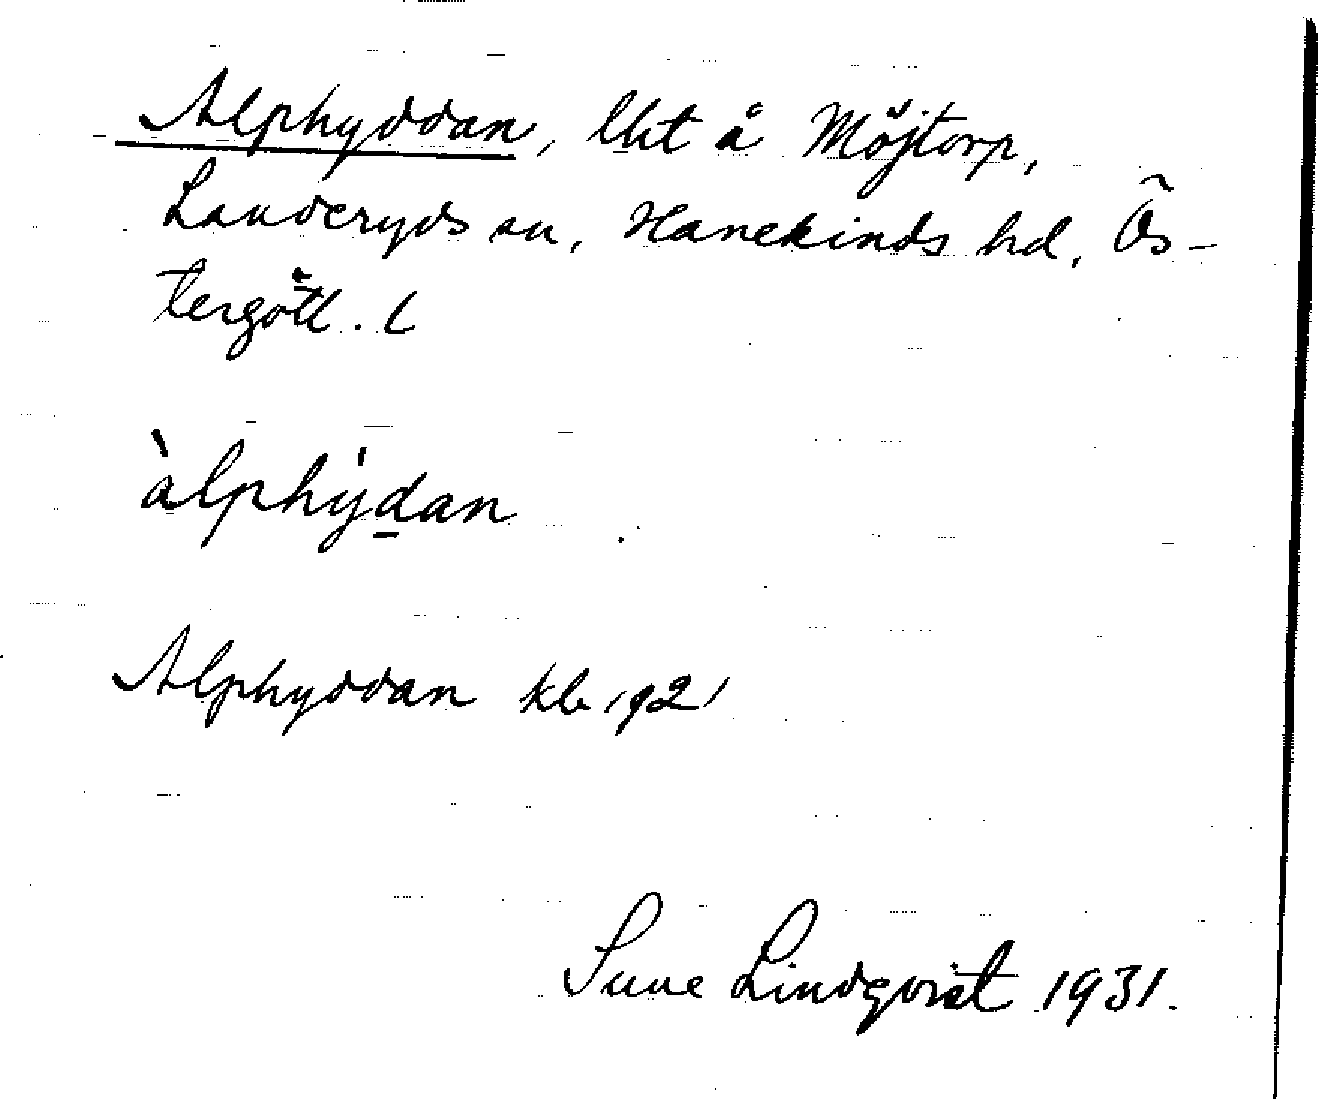 Alphyddan, lht å Möjtorp,
Landeryds sn, Hanekinds hd, Ös-
tergötl. l
àlphýdan
Alphyddan kb 1921
Sune Lindqvist 1931.